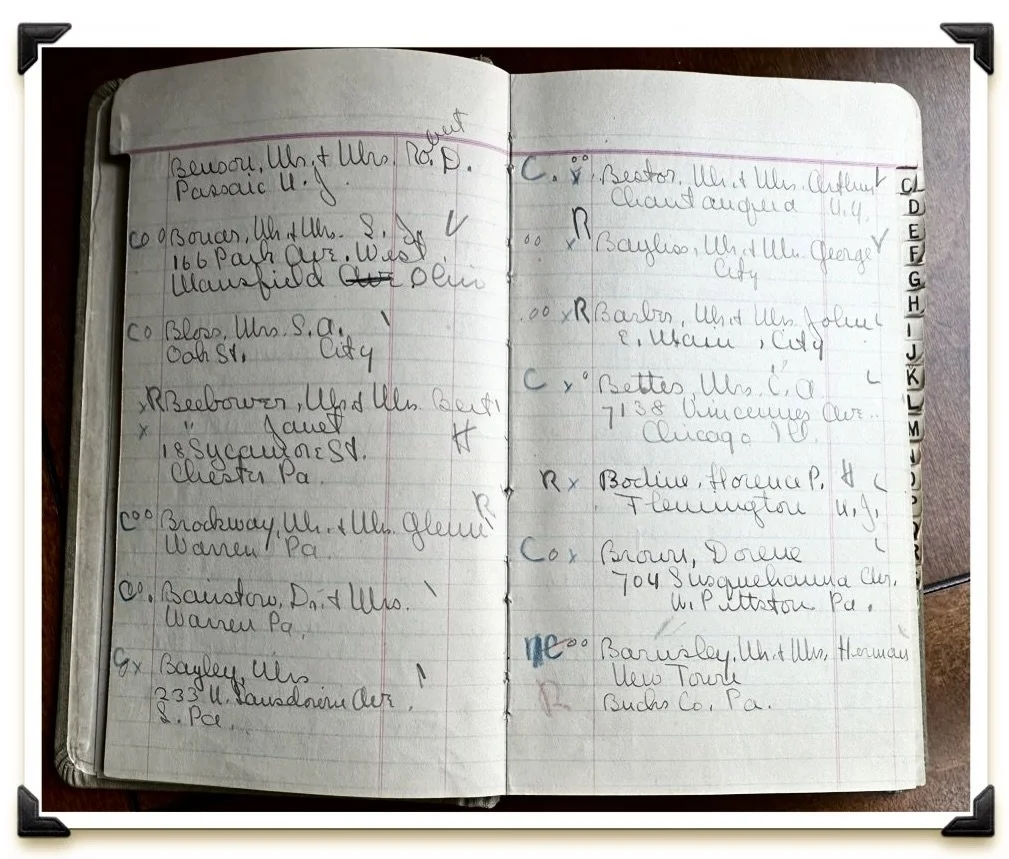 Benson, Mr. & Mrs. Ro. D.
Passaic N. J.
CO O Bonar, Mr. & Mrs. S. J. V
166 Park Ave. West
Mansfield Ave Ohio
CO Bloss, Mrs. S. A. \
Oak St. City
x R Beebower, Mr. & Mrs. Bert
x " Janet
18 Sycamore St. H
Chester Pa.
R
C oo Brockway, Mr. & Mrs. Glenn
Warren Pa.
Co. Bairstow, Dr. & Mrs. \
Warren Pa.
x Bayley, Mrs \
233 N. Lansdowne Ave.
L. Pa.
C. oo x Bestor, Mr. & Mrs. Arthur
Chautauqua N. Y.
R
oo x Bayliss, Mr. & Mrs. George
City
oo x R Barber, Mr. & Mrs. John
E. Main, City
C x o Bettes, Mrs. C. A
7138 Vincennes Ave.
Chicago Ill.
R x Bodine, Florence P. H
Flemington N. J.
Co x Brown, Dorene
704 Susquehanna Av.
W. Pittston Pa.
NC oo Barnsley, Mr. & Mrs. Herman
New Town
R Bucks Co. Pa.
C
D
E
F
G
H
I
J
K
L
M